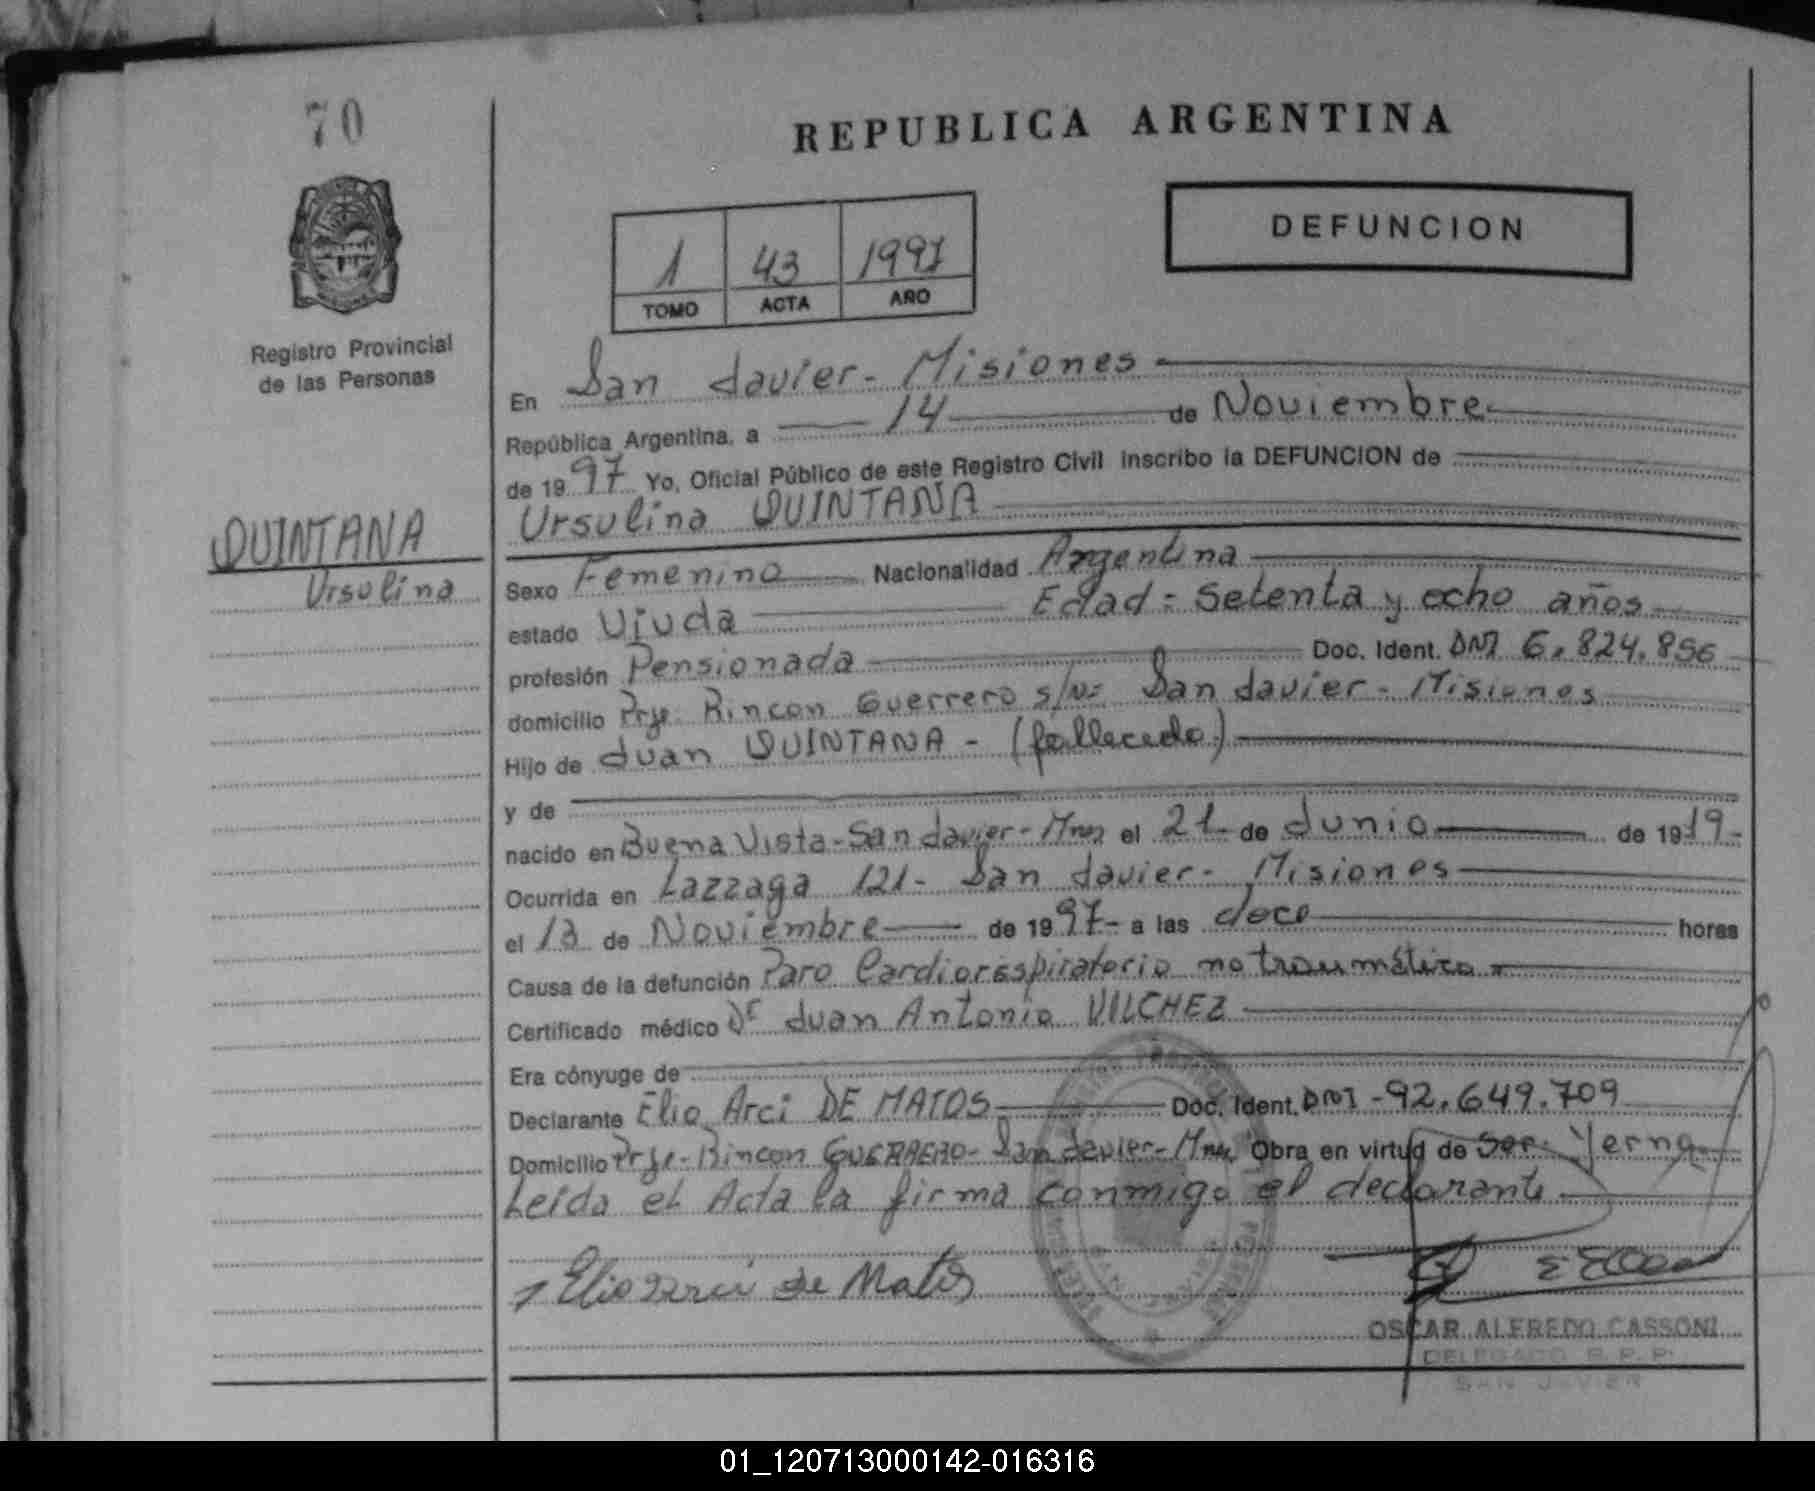 70
REPUBLICA ARGENTINA
DEFUNCION
1 43 1997
TOMO ACTA AÑO
Registro Provincial
de las Personas
En San Javier - Misiones
República Argentina, a 14 de Noviembre
de 1997 Yo, Oficial Público de este Registro Civil inscribo la DEFUNCION de
Ursulina QUINTANA
QUINTANA
Ursulina
Sexo Femenino Nacionalidad Argentina
estado Viuda Edad: Setenta y ocho años
profesión Pensionada Doc. Ident. DNI 6.824.856
domicilio Prje. Rincon Guerrero s/Nº San Javier - Misiones
Hijo de Juan QUINTANA - (fallecido)
y de
nacido en Buena Vista - San Javier - Mnes el 21 de Junio de 1919.
Ocurrida en Lazzaga 121 - San Javier - Misiones
el 13 de Noviembre de 1997 - a las doce horas
Causa de la defunción Paro Cardiorespiratorio no traumático
Certificado médico Dr Juan Antonio VILCHEZ
Era cónyuge de
Declarante Elio Arci DE MATOS Doc. Ident. DNI - 92.649.709
Domicilio Prje - Rincon GUERRERO - San Javier - Mnes Obra en virtud de Ser: Yerno
Leida el Acta la firma conmigo el declarante
Elio Arci de Matos
OSCAR ALFREDO CASSONI
DELEGADO R. P. P.
SAN JAVIER
01_120713000142-016316